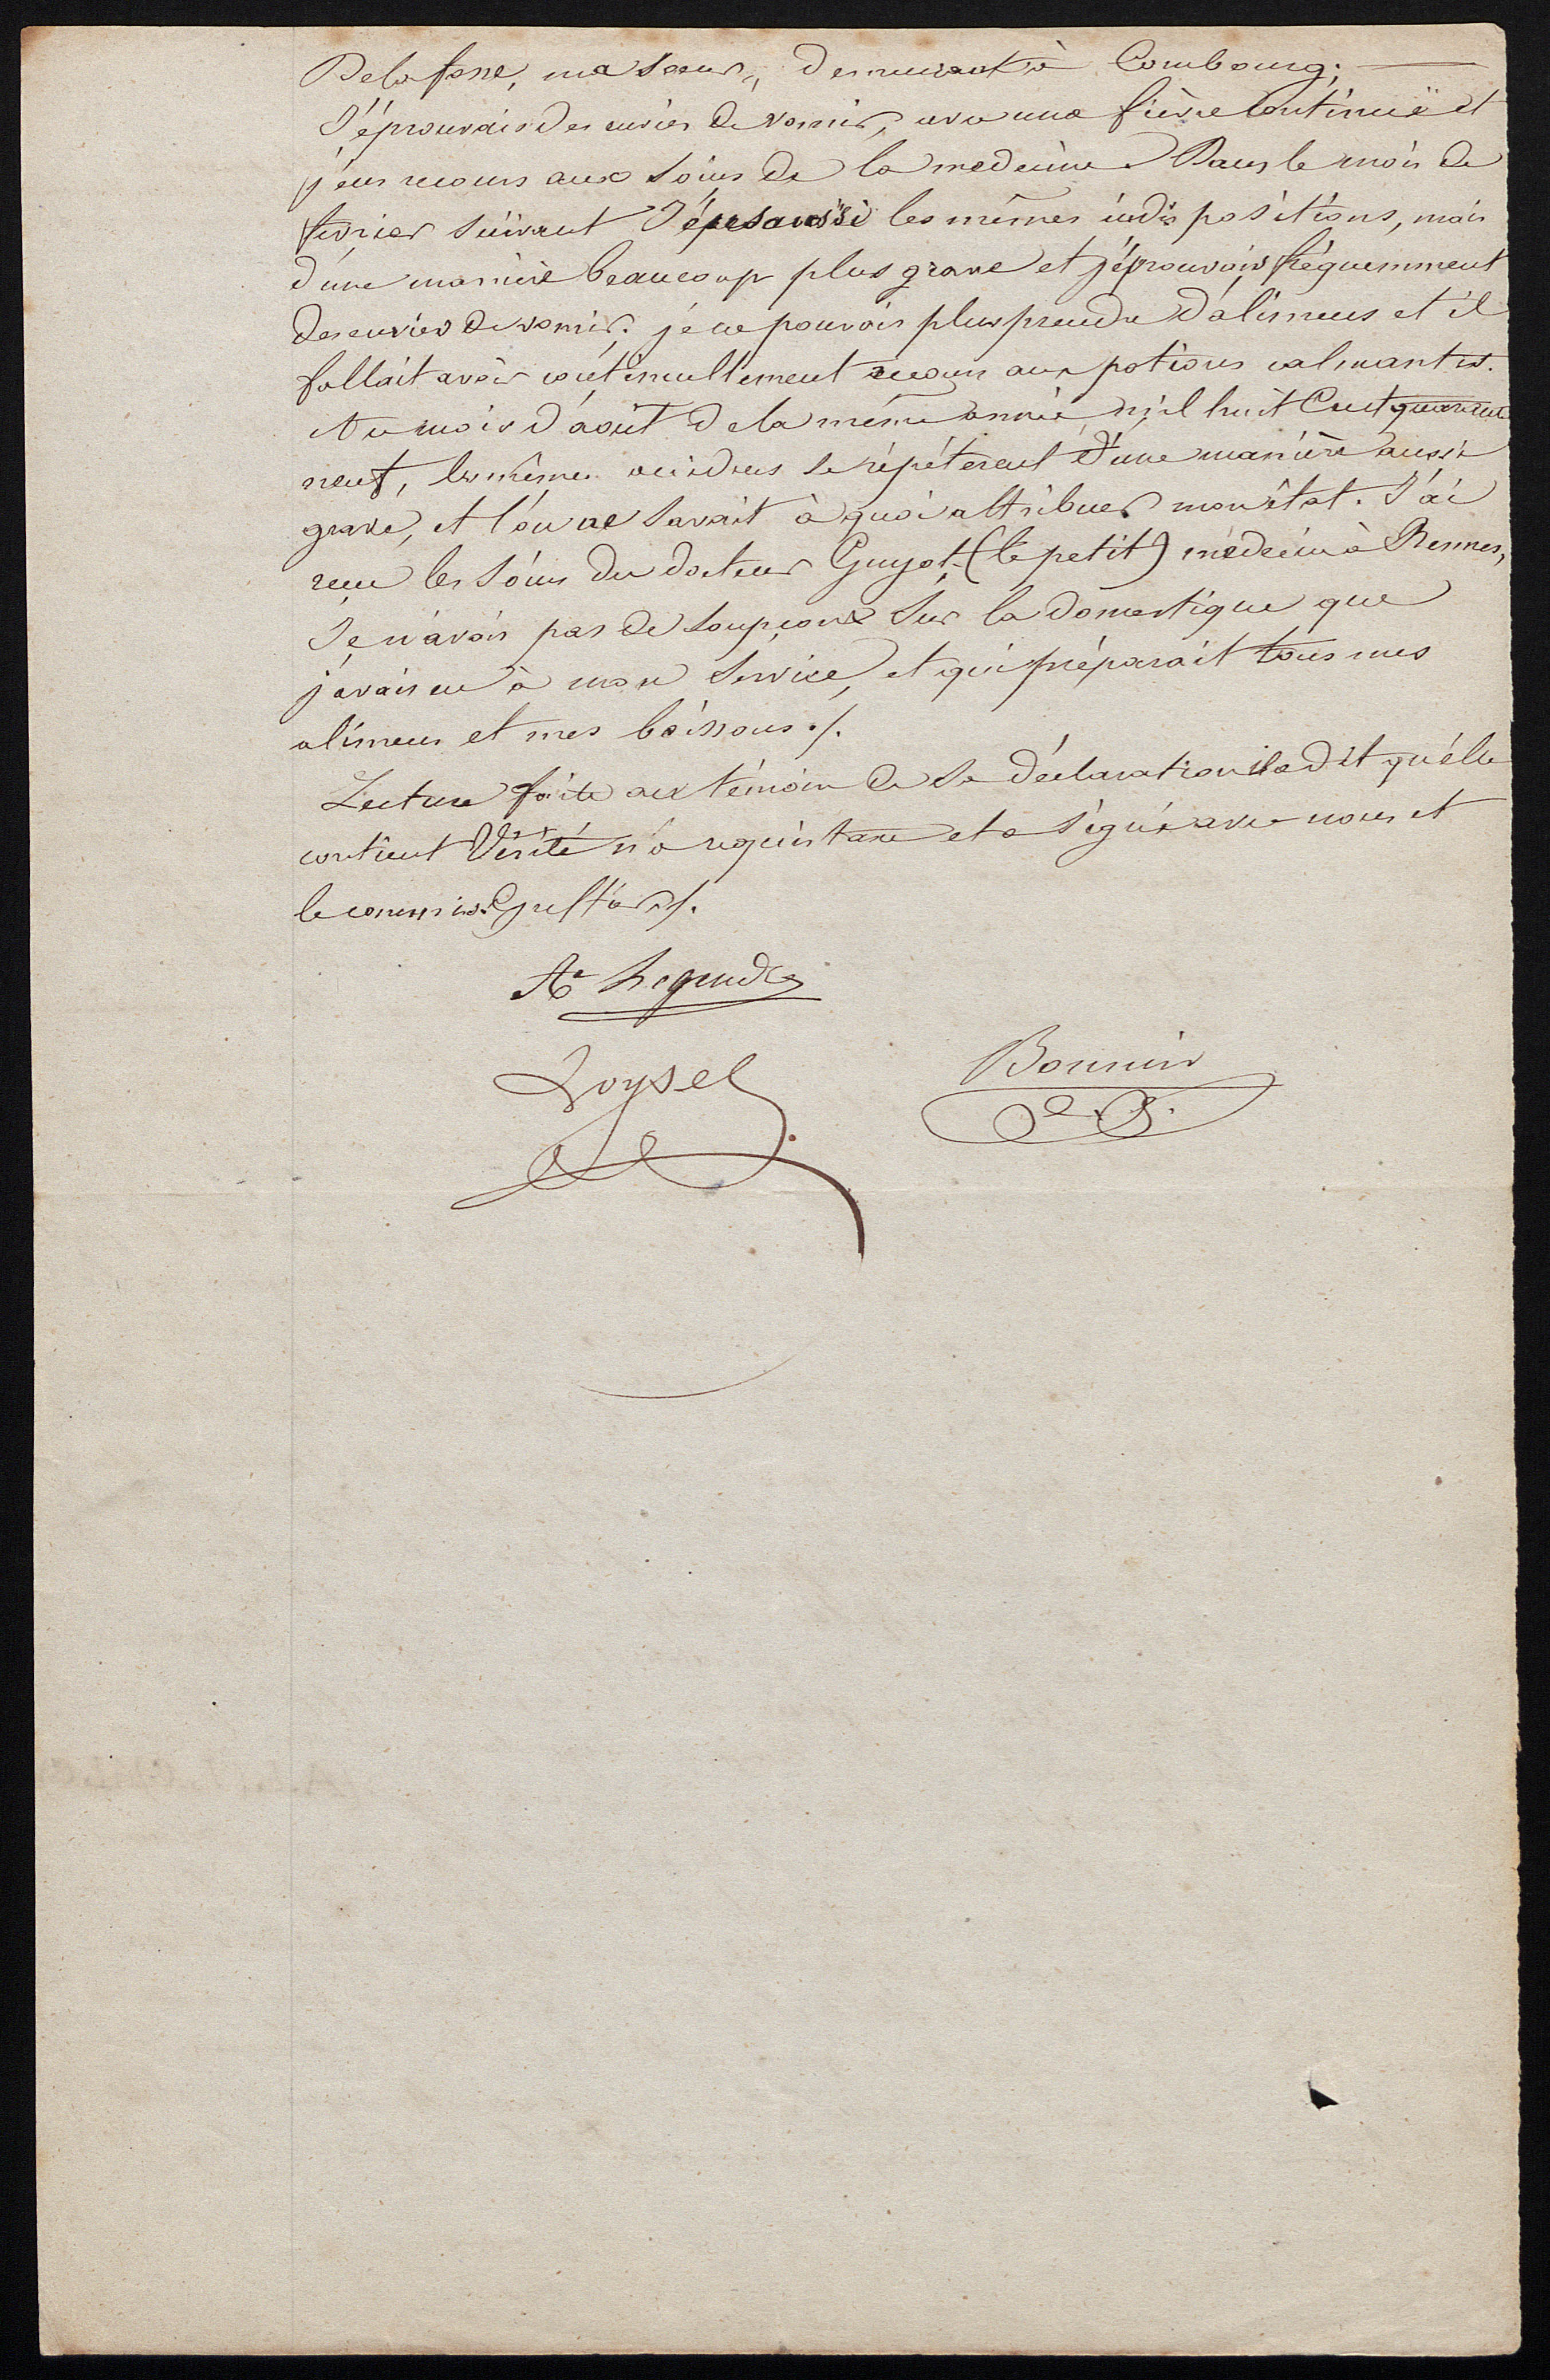 Delafosse, ma soeur, demeurant à Combourg;
J'éprouvais des envies de vomir, avec une fièvre continuë et
j'eus recours aux soins de la medecine. Dans le mois de
fevrier suivant J'épr aussi les mêmes indispositions, mais
d'une manière beaucoup plus grave et j'éprouvais fréquemment
des envies de vomir; je ne pouvais plus prendre d'alimens et il
fallait avoir continuellement recours aux potions calmantes.
Au mois d'août de la même année mil huit Cent quarante
neuf, les mêmes accidens se répétèrent d'une manière aussi
grave, et l'on ne savait à quoi attribuer mon état. J'ai
reçu les soins du docteur Guyot, (le petit) médecin à Rennes,
Je n'avais pas de soupçons sur la domestique que
j'avais eu à mon service, et qui préparait tous mes
alimens et mes boissons ./.
Lecture faite au témoin de sa déclaration il a dit qu'elle
contient Vérité n'a requis taxe et a signé avec nous et
le commis Greffier ./.
Legendre
Loysel
Bonnin